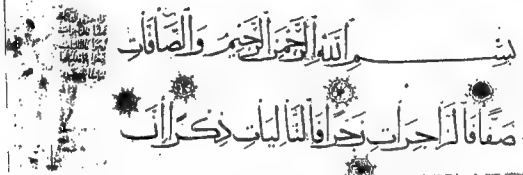 بسم الله الرحمن الرحيم والصافات
صفا فالزاجرات زجرا فالتاليات ذكرا إن